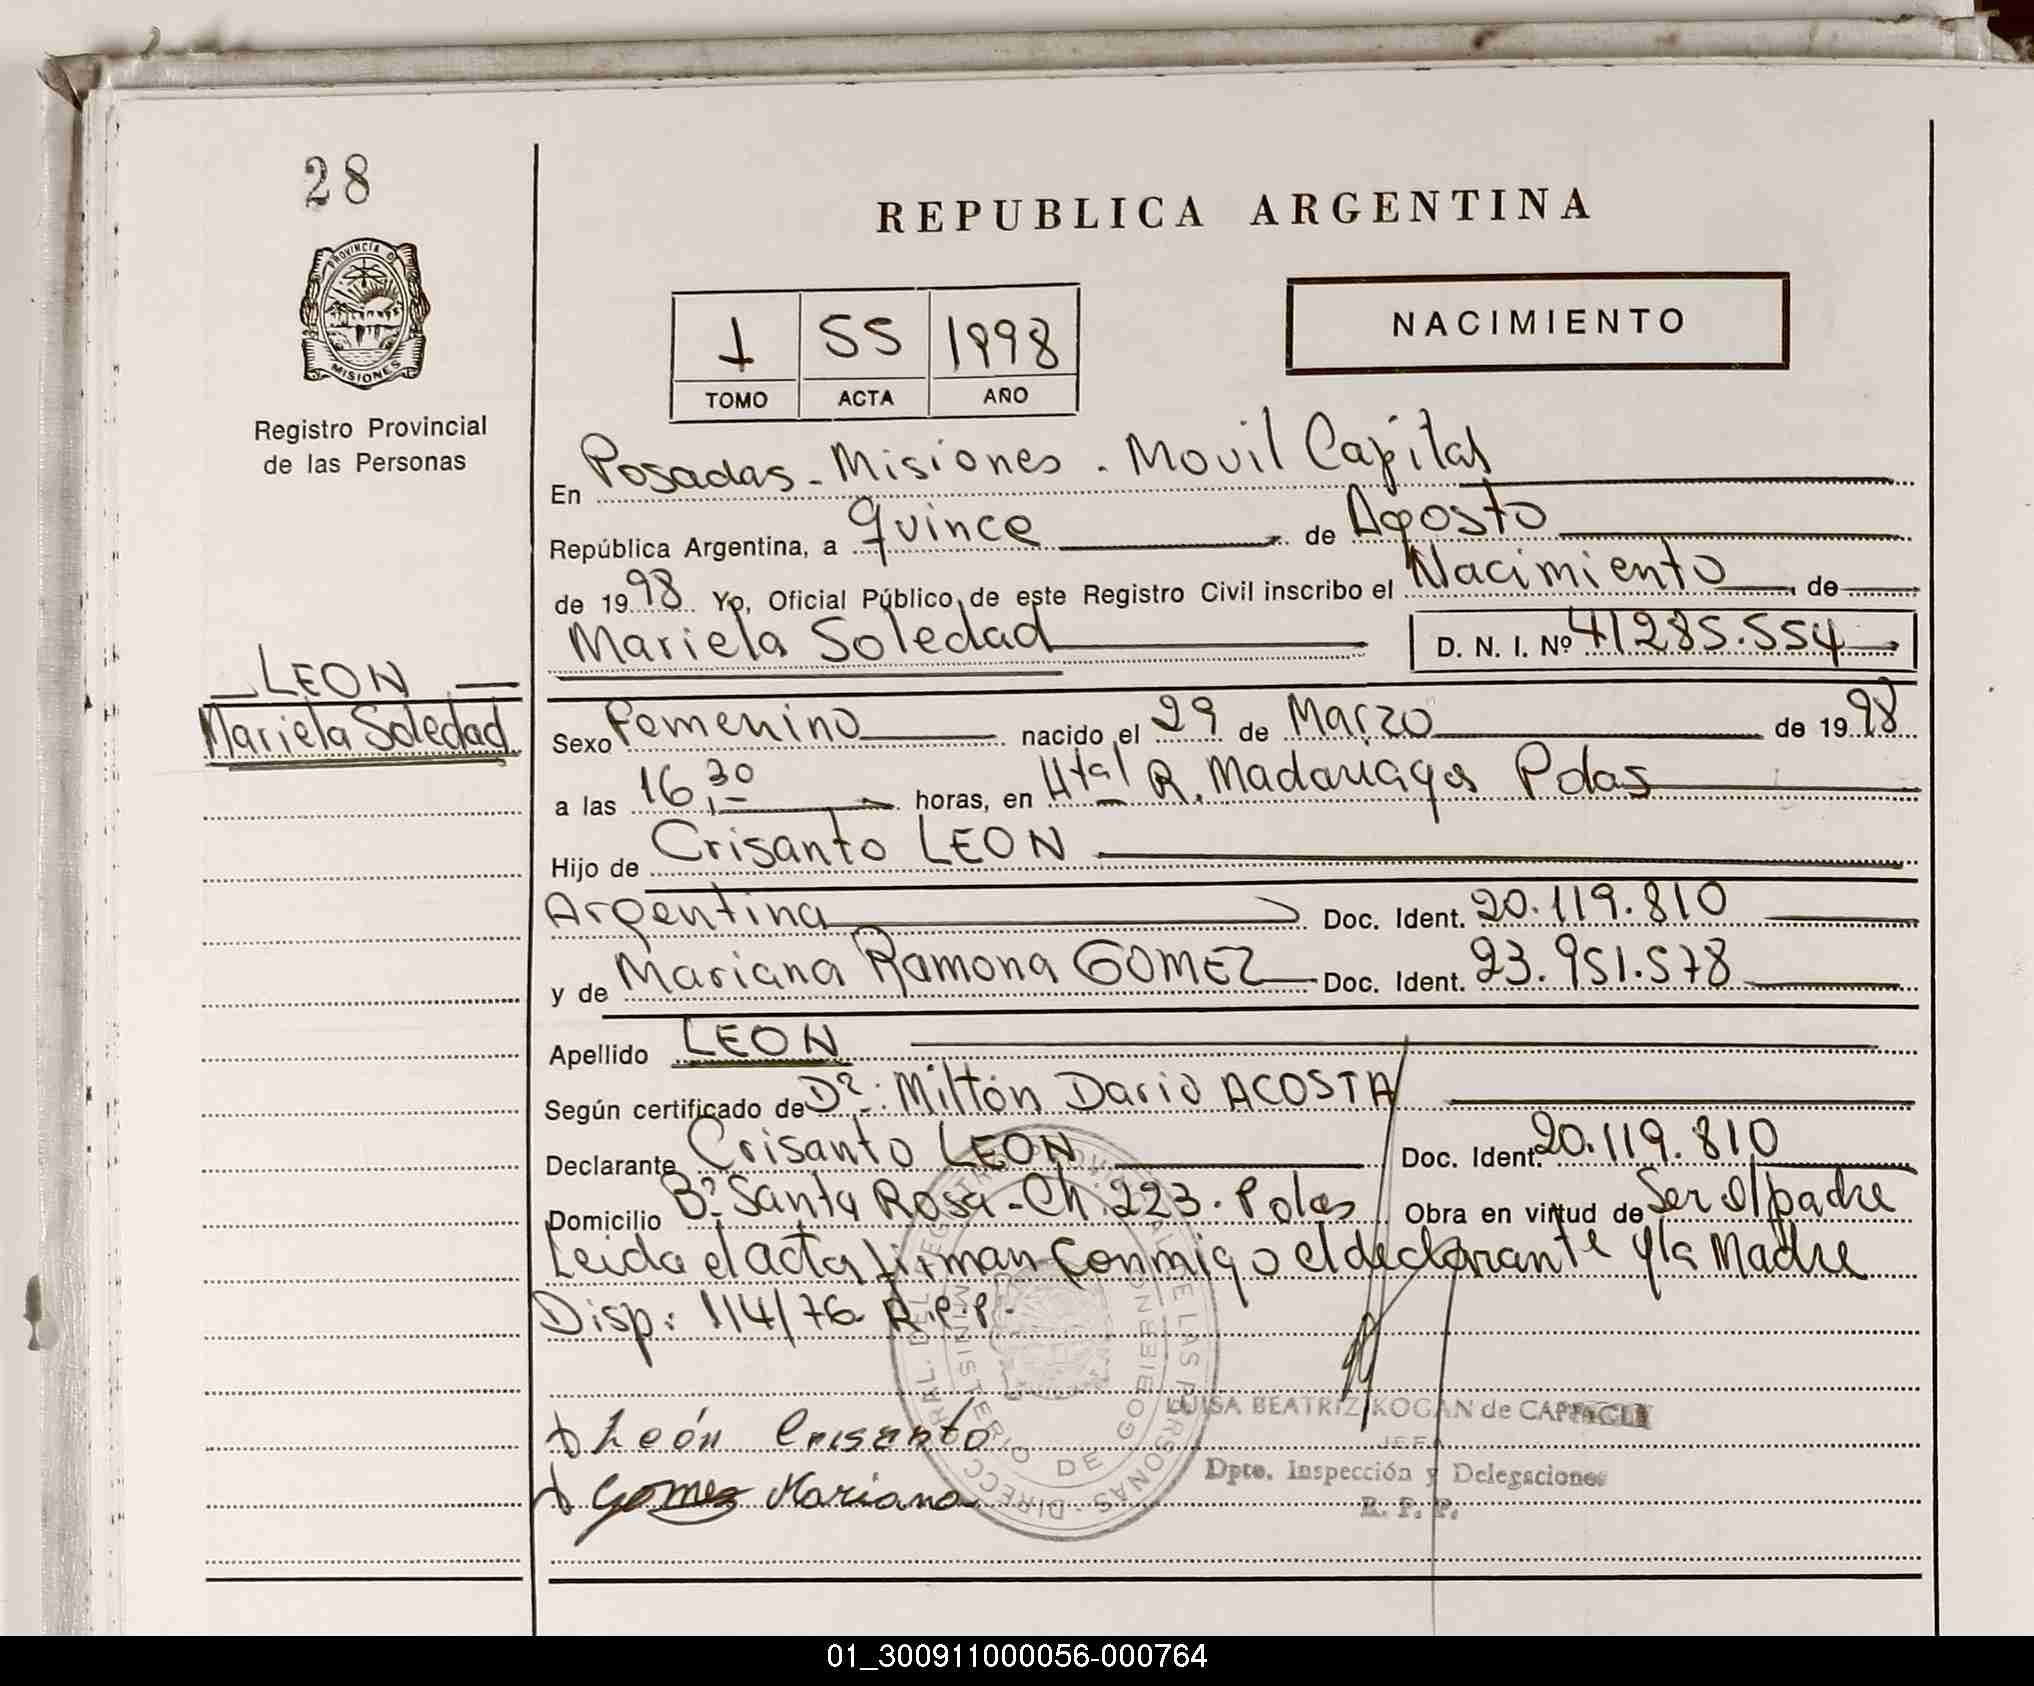 28
PROVINCIA D
MISIONES
Registro Provincial
de las Personas
REPUBLICA ARGENTINA
1 55 1998
TOMO ACTA AÑO
NACIMIENTO
En Posadas - Misiones . Movil Capital
República Argentina, a quince de Agosto
de 1998 Yo, Oficial Público de este Registro Civil inscribo el Nacimiento de
Mariela Soledad D. N. I. Nº 41285.554
LEON
Mariela Soledad
Sexo Femenino nacido el 29 de Marzo de 1998
a las 16,30 horas, en Htal R. Madariaga Pdas
Hijo de Crisanto LEON
Argentina Doc. Ident. 20.119.810
y de Mariana Ramona GOMEZ Doc. Ident. 23.951.578
Apellido LEON
Según certificado de Dº: Miltón Dario ACOSTA
Declarante Crisanto LEON Doc. Ident. 20.119.810
Domicilio Bº Santa Rosa - Ch. 223 . Pdas Obra en virtud de Ser el padre
Leida el acta firman conmigo el declarante y la Madre
Disp: 114/76 R.P.P.
LUISA BEATRIZ KOGAN de
JEFA
Dpto. Inspección y Delegaciones
R. P. P.
León Crisanto
Gomez Mariana
MINISTERIO DE GOBIERNO
01_300911000056-000764